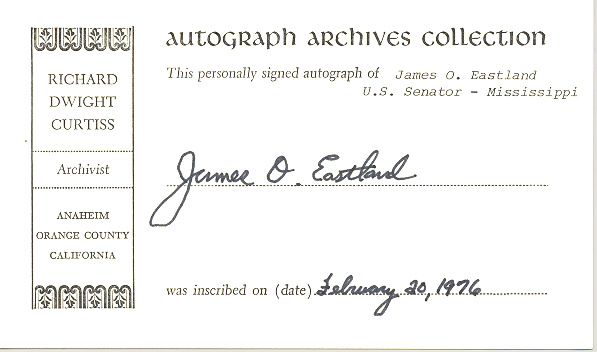 autograph archives collection
RICHARD
DWIGHT
CURTISS
Archivist
ANAHEIM
ORANGE COUNTY
CALIFORNIA
This personally signed autograph of James O. Eastland
U.S. Senator - Mississippi
James O. Eastland
was inscribed on (date) February 20, 1976